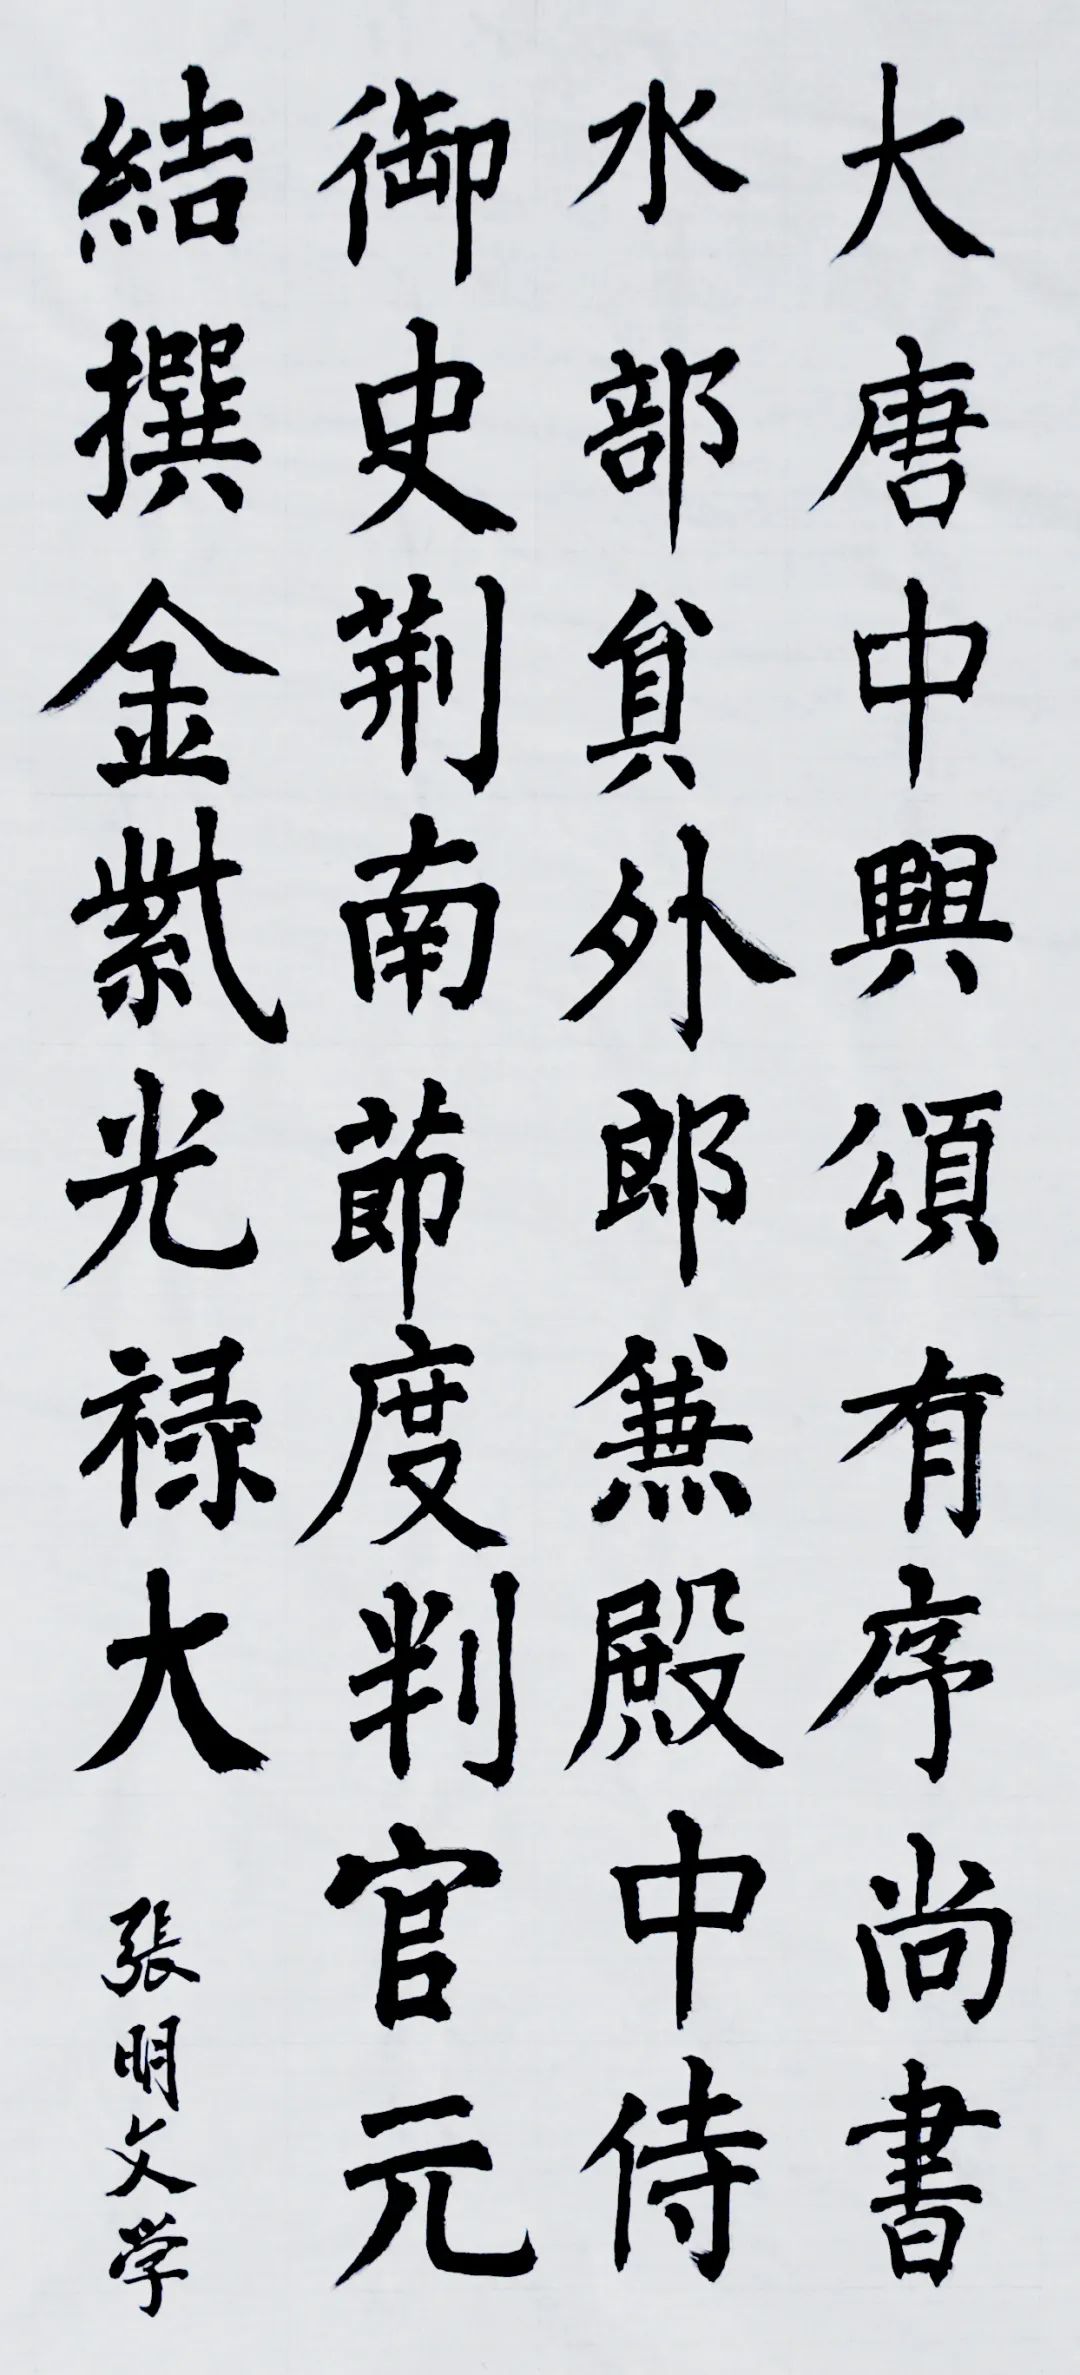 大唐中興頌有序尚書
水部貟外郎兼殿中侍
御史荆南節度判官元
結撰金紫光禄大
張明文学